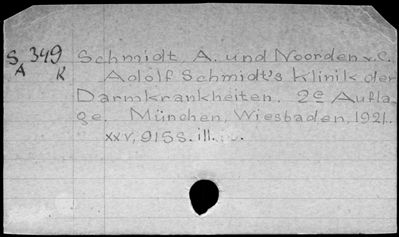 S 349 Schmidt, A. und Noorden v.C.
A K Adolf Schmidt's Klinik der
Darmkrankheiten. 2e Aufla-
ge. München, Wiesbaden, 1921.
xxv, 915 s. ill.